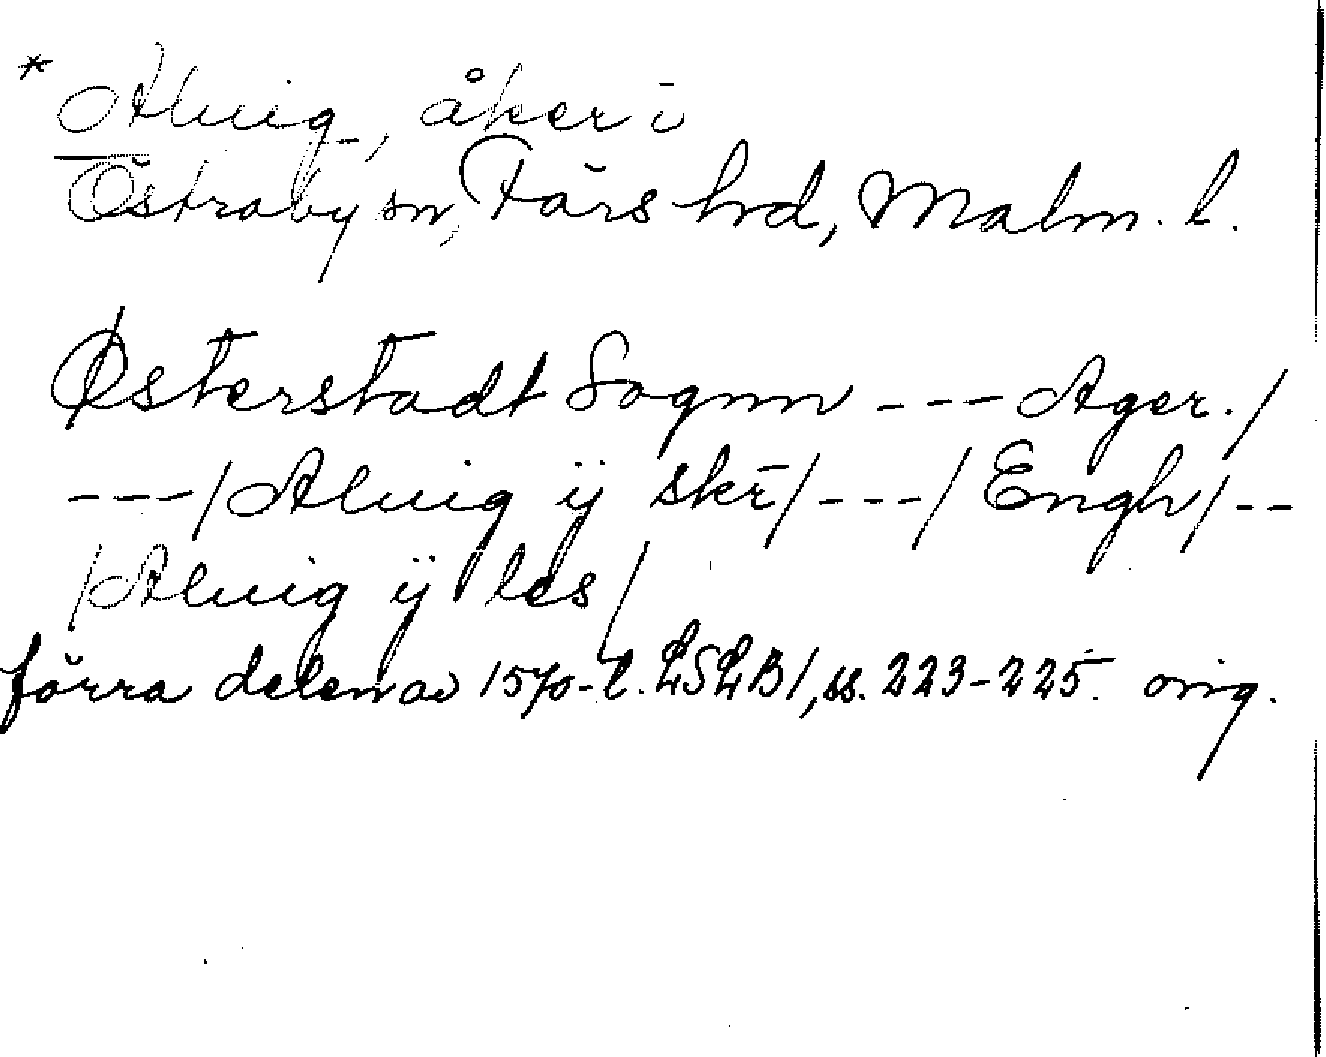 * Aluig, åker i
Östraby sn, Färs hd, Malm. l.
Østerstadt Sognn --- Ager./
---/Aluig ij skr̄/---/Engh/--
/Aluig ij les/
förra delen av 1570-t. LSLB1, ss. 223-225. orig.